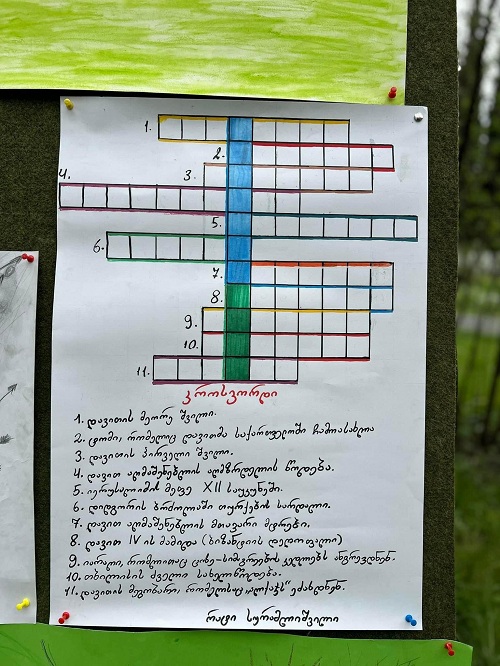 1.
2.
3.
4.
5.
6.
7.
8.
9.
10.
11.
კროსვორდი
1. დავითის მეორე შვილი.
2. ტომი, რომელიც დავითმა საქართველოში ჩამოასახლა
3. დავითის პირველი შვილი.
4. დავით აღმაშენებლის აღმზრდელის წოდება.
5. იერუსალიმის მეფე XII საუკუნეში.
6. დიდგორის ბრძოლაში თურქების სარდალი.
7. დავით აღმაშენებლის მთავარი მტრები.
8. დავით IV ის მამიდა (ბიზანტიის დედოფალი)
9. იარაღი, რომლითაც ციხე-სიმაგრეების კედლებს ანგრევდნენ.
10. თბილისის ძველი სახელწოდება.
11. დავითის მეგობარი, რომელსაც „ალქაჯს“ ეძახდნენ.
რატი სურამლიშვილი